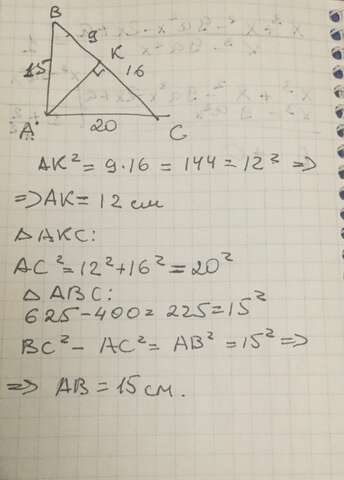 B
9
K
15
16
A
20
C
AK² = 9·16 = 144 = 12² =>
=> AK = 12 см
△ AKC:
AC² = 12² + 16² = 20²
△ ABC:
625 - 400 = 225 = 15²
BC² - AC² = AB² = 15² =>
=> AB = 15 см.